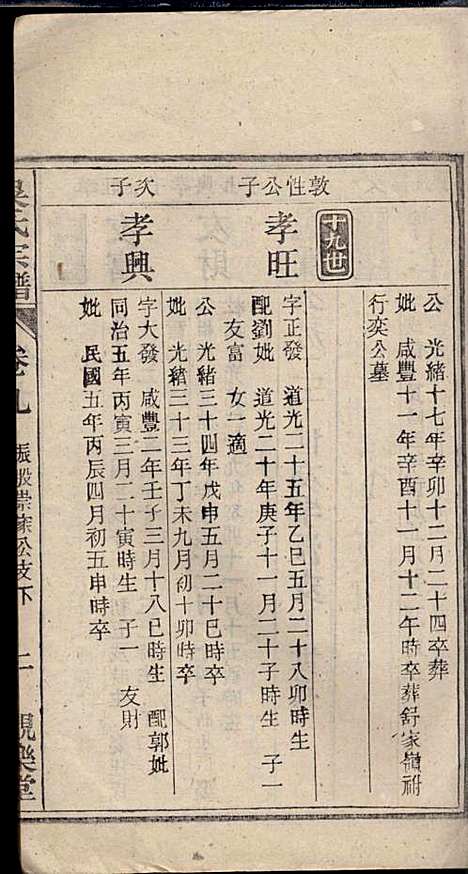 公 光緒十七年辛卯十二月二十四卒葬
妣 咸豐十一年辛酉十一月十二午時卒葬舒家嶺祔
行奕公墓
十九世
敦性公子
孝旺
字正發 道光二十五年乙巳五月二十八卯時生
配劉妣 道光二十年庚子十一月二十子時生 子一
友富 女一適
公 光緒三十四年戊申五月二十巳時卒
妣 光緒三十三年丁未九月初十卯時卒
次子
孝興
字大發 咸豐二年壬子三月十八巳時生 配郭妣
同治五年丙寅三月二十寅時生 子一 友財
妣 民國五年丙辰四月初五申時卒
氏宗譜 卷九 公支下 二 覩樂堂